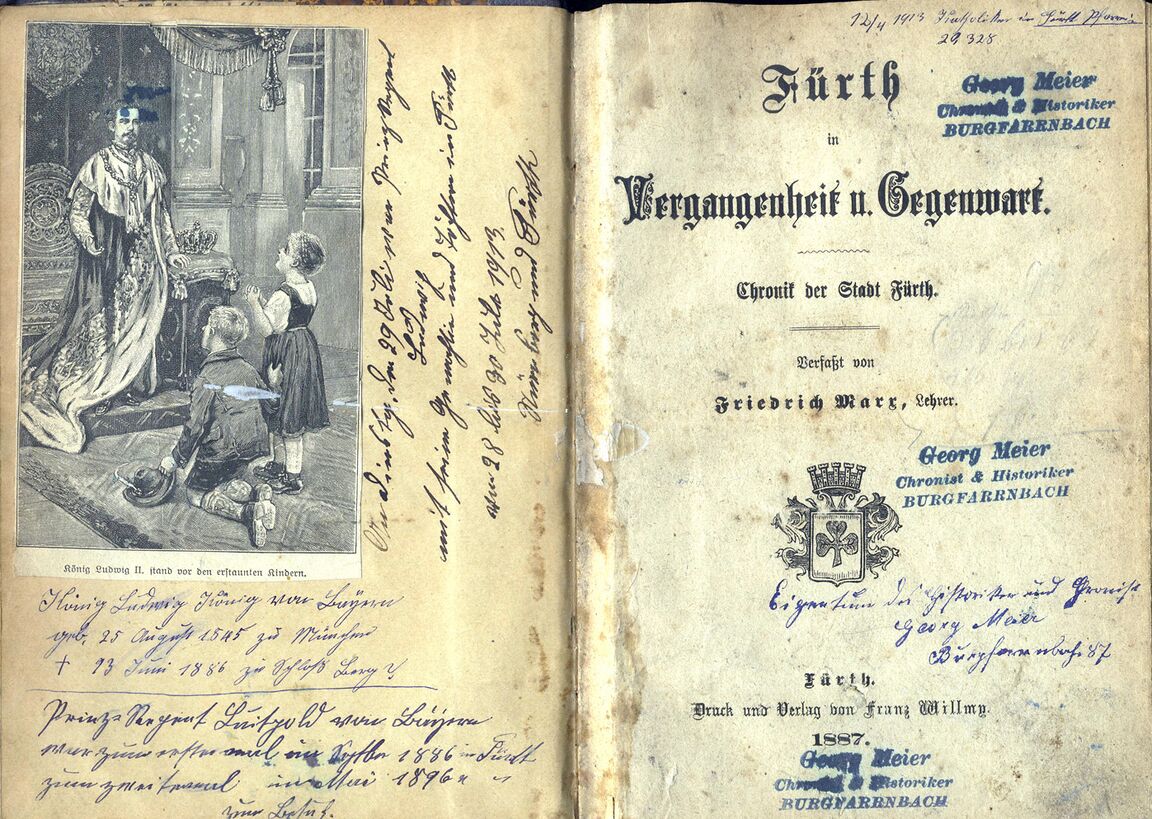 König Ludwig II. stand vor den erstaunten Kindern.
König Ludwig König von Bayern
geb. 25 August 1845 zu München
† 13 Juni 1886 zu Schloß Berg
Prinz-Regent Luitpold von Bayern
war zum erstenmal im Septbr 1886 in Fürth
zum zweitenmal im Mai 1896
zum Besuch.
Dienstag, den 29 Juli war Prinz Regent
Ludwig
mit seiner Gemahlin und Töchtern in Fürth
28 bis 30 Juli 1913
Nürnberg und Fürth
12/4 1913 Katholiken in Fürth
29 328
Fürth
in
Vergangenheit u. Gegenwart.
Chronik der Stadt Fürth.
Verfaßt von
Friedrich Marx, Lehrer.
Georg Meier
Chronist & Historiker
BURGFARRNBACH
Georg Meier
Chronist & Historiker
BURGFARRNBACH
Eigentum des Historiker und Chronist
Georg Meier
Burgfarrnbach 87
Fürth.
Druck und Verlag von Franz Willmy.
1887.
Georg Meier
Chronist & Historiker
BURGFARRNBACH